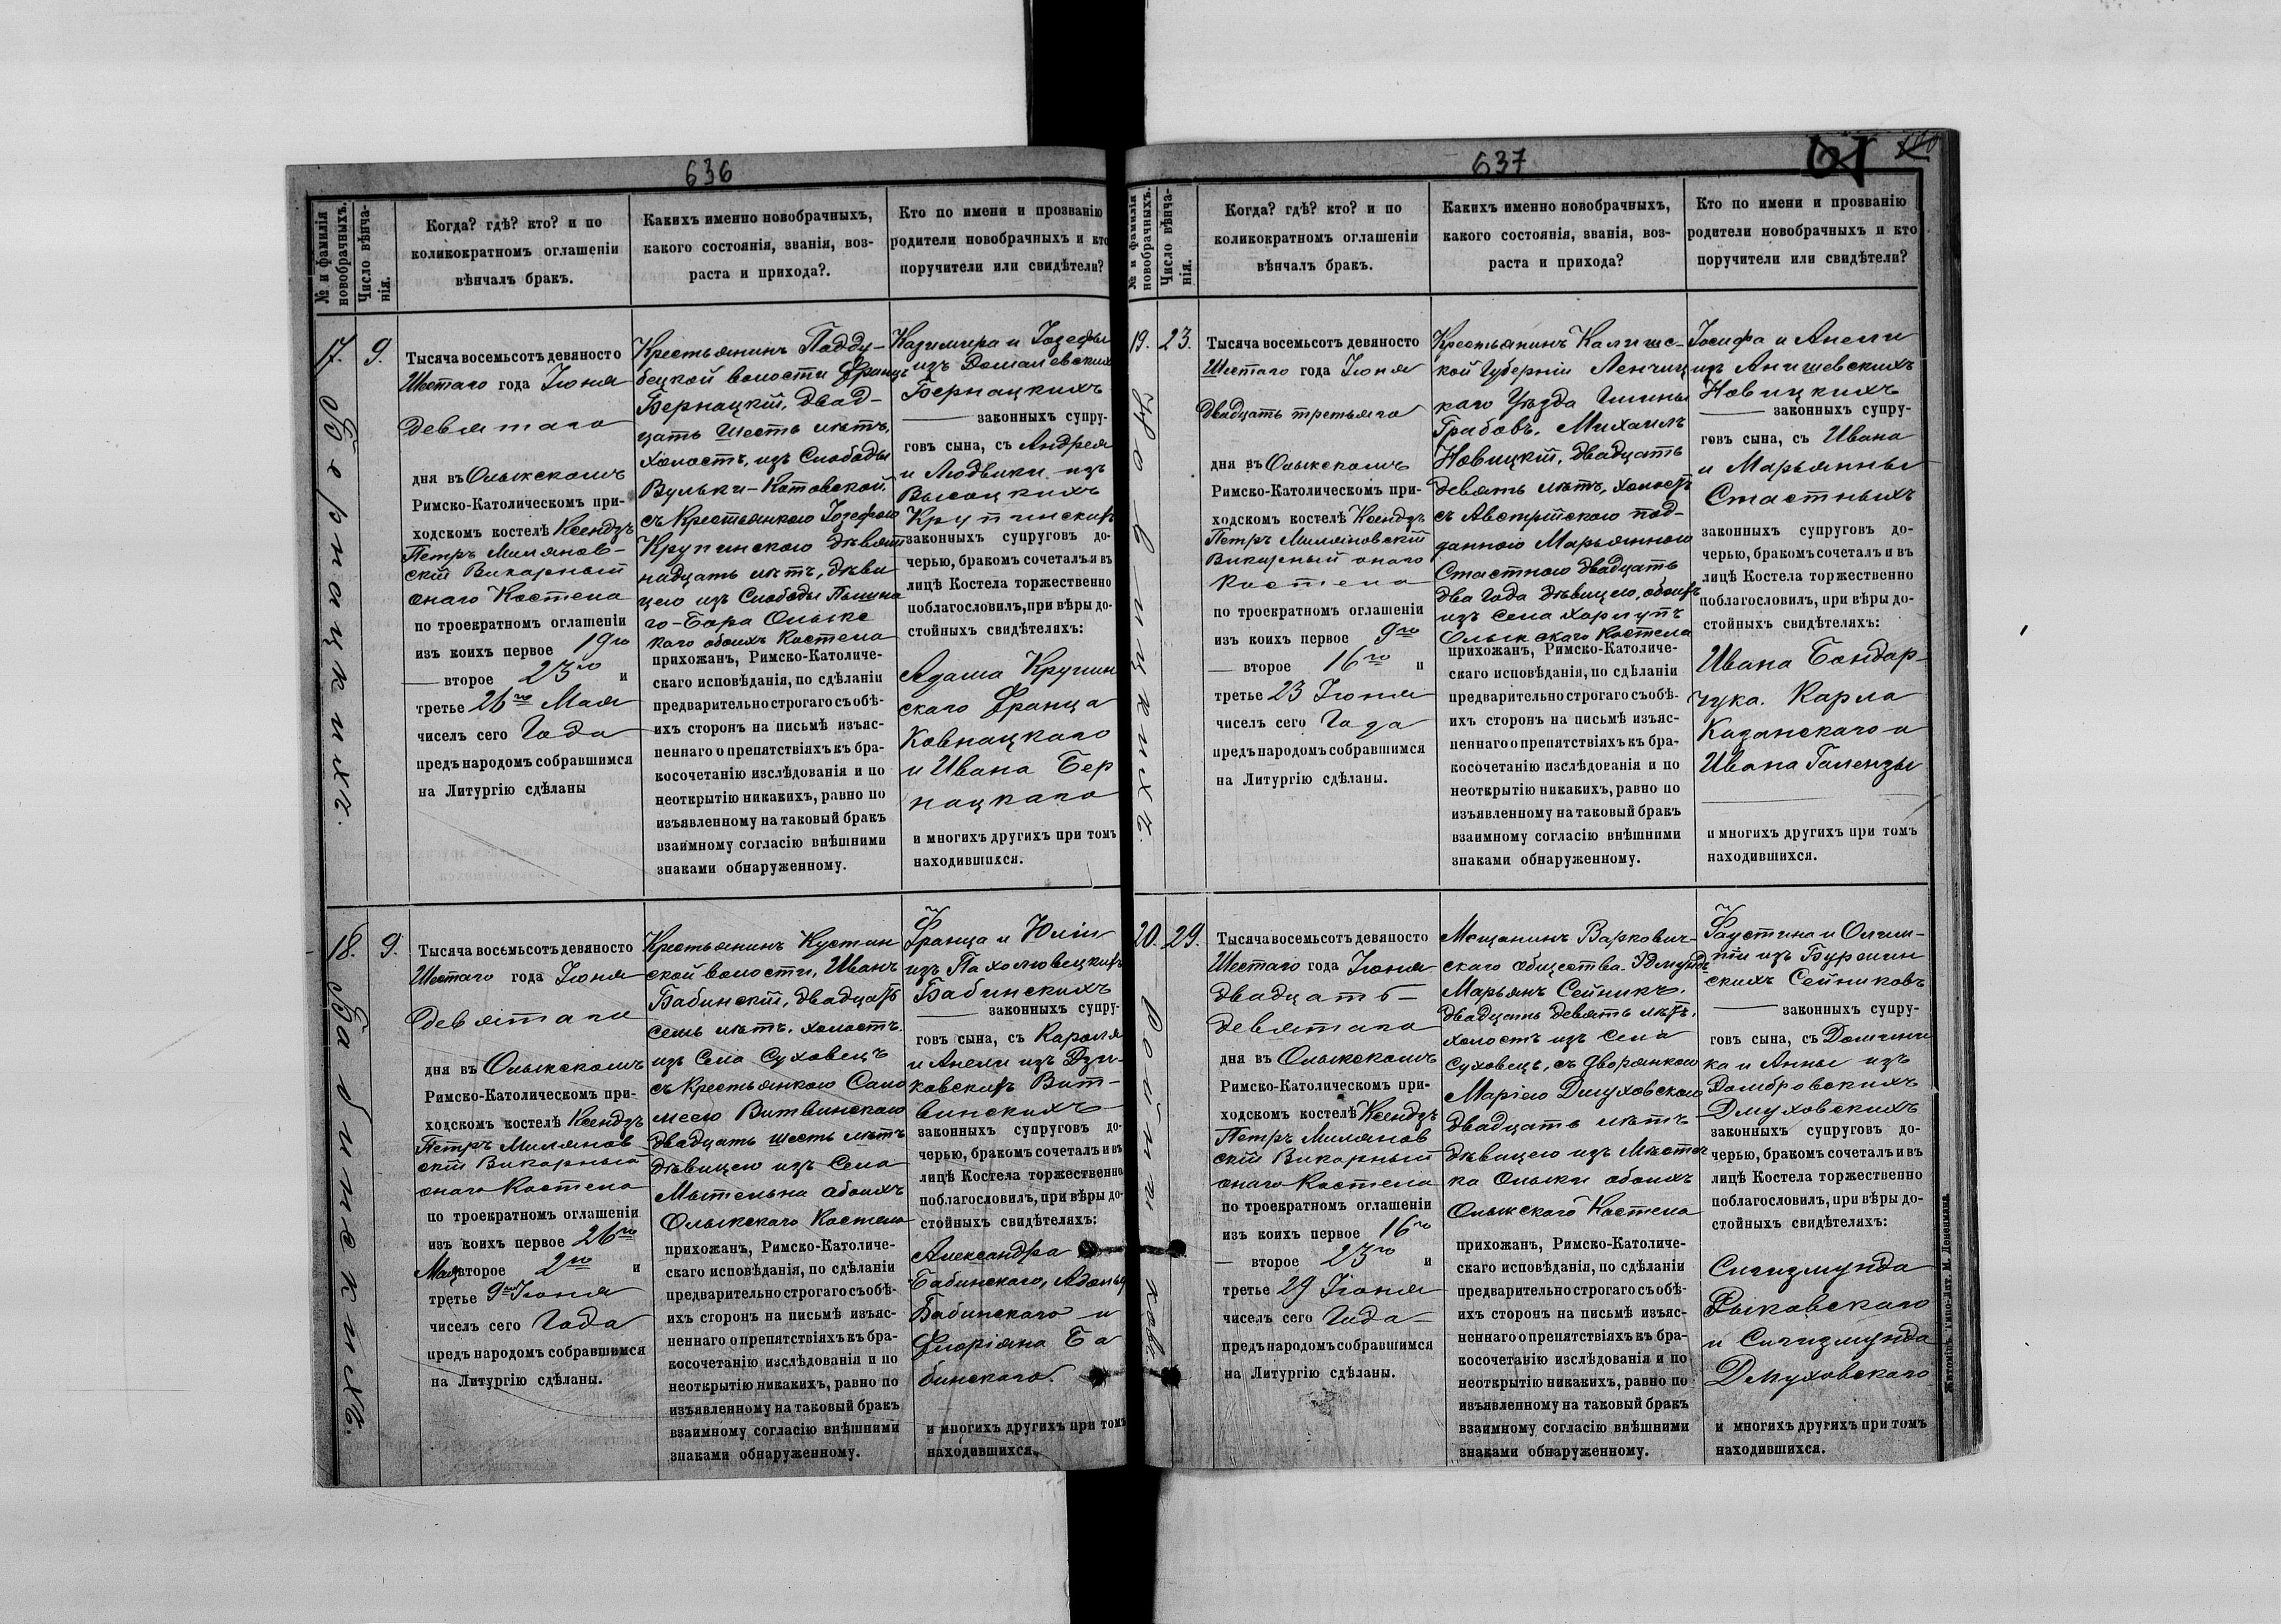 636
№ и фамилія
новобрачныхъ.
Число вѣнча-
нія.
Когда? гдѣ? кто? и по
коликократномъ оглашеніи
вѣнчалъ бракъ.
Какихъ именно новобрачныхъ,
какого состоянія, званія, воз-
раста и прихода?.
Кто по имени и прозванію
родители новобрачныхъ и кто
поручители или свидѣтели?
17.
Бернацкихъ.
9.
Тысяча восемьсотъ девяносто
Шестаго года Іюня
Девятаго
дня въ Олыкскомъ
Римско-Католическомъ при-
ходскомъ костелѣ Ксендзъ
Петръ Милянов-
скій Викарный
онаго Костела
по троекратномъ оглашеніи
изъ коихъ первое 19го
второе 23го и
третье 26го Мая
чиселъ сего Года
предъ народомъ собравшимся
на Литургію сдѣланы
Крестьянинъ Подду-
бецкой волости Францъ
Бернацкій, двад-
цать шесть лѣтъ,
холостъ, изъ Слободы
Вульки-Котовской,
съ Крестьянкою Іозефою
Крупинскою девят
надцать лѣтъ, дѣви
цею изъ Слободы
го-Бора Олыкс
каго обоихъ Костела
прихожанъ, Римско-Католиче-
скаго исповѣданія, по сдѣланіи
предварительно строгаго съ обѣ-
ихъ сторонъ на письмѣ изъяс-
неннаго о препятствіяхъ къ бра-
косочетанію изслѣдованія и по
неоткрытію никакихъ, равно по
изъявленному на таковый бракъ
взаимному согласію внѣшними
знаками обнаруженному.
Казимира и Іозефы
изъ Домалевскихъ
Бернацкихъ
законныхъ супру-
говъ сына, съ Андрея
и Людвики изъ
Высоцкихъ
Крупинскихъ
законныхъ супруговъ до-
черью, бракомъ сочеталъ и въ
лицѣ Костела торжественно
поблагословилъ, при вѣры до-
стойныхъ свидѣтеляхъ:
Адама Крупин
скаго Франца
Ковнацкаго
и Ивана Бер
нацкаго
и многихъ другихъ при томъ
находившихся.
18.
Бабинскихъ.
9.
Тысяча восемьсотъ девяносто
Шестаго года Іюня
Девятаго
дня въ Олыкскомъ
Римско-Католическомъ при-
ходскомъ костелѣ Ксендзъ
Петръ Милянов
скій Викарный
онаго Костела
по троекратномъ оглашеніи
изъ коихъ первое 26го
Мая второе 2го и
третье 9го Іюня
чиселъ сего Года
предъ народомъ собравшимся
на Литургію сдѣланы.
Крестьянинъ Кустин
ской волости, Иванъ
Бабинскій, двадцать
семь лѣтъ, холостъ.
изъ Села Суховецъ
съ Крестьянкою Сало
меею Витвинскою
двадцать шесть лѣтъ
дѣвицею изъ Села
Мытельна обоихъ
Олыкскаго Костела
прихожанъ, Римско-Католиче-
скаго исповѣданія, по сдѣланіи
предварительно строгаго съ обѣ-
ихъ сторонъ на письмѣ изъяс-
неннаго о препятствіяхъ къ бра-
косочетанію изслѣдованія и по
неоткрытію никакихъ, равно по
изъявленному на таковый бракъ
взаимному согласію внѣшними
знаками обнаруженному.
Франца и Юліи
изъ Пахоловецкихъ
Бабинскихъ
законныхъ супру-
говъ сына, съ Кароля
и Анели изъ Дзи-
ковскихъ Вит-
винскихъ
законныхъ супруговъ до-
черью, бракомъ сочеталъ и въ
лицѣ Костела торжественно
поблагословилъ, при вѣры до-
стойныхъ свидѣтеляхъ:
Александра
Бабинскаго, Адольфа
Бабинскаго и
Флоріана Ба
бинскаго.
и многихъ другихъ при томъ
находившихся.
637
№ и фамилія
новобрачныхъ.
Число вѣнча-
нія.
Когда? гдѣ? кто? и по
коликократномъ оглашеніи
вѣнчалъ бракъ.
Какихъ именно новобрачныхъ,
какого состоянія, званія, воз-
раста и прихода?
Кто по имени и прозванію
родители новобрачныхъ и кто
поручители или свидѣтели?
19.
Новицкихъ.
23.
Тысяча восемьсотъ девяносто
Шестаго года Іюня
Двадцать третьяго
дня въ Олыкскомъ
Римско-Католическомъ при-
ходскомъ костелѣ Ксендзъ
Петръ Миляновскій
Викарный онаго
Костела
по троекратномъ оглашеніи
изъ коихъ первое 9го
второе 16го и
третье 23 Іюня
чиселъ сего Года
предъ народомъ собравшимся
на Литургію сдѣланы.
Крестьянинъ Калишс-
кой Губерніи Ленчиц
каго Уѣзда Гмины
Грабовъ, Михаилъ
Новицкій, двадцать
девять лѣтъ, холостъ
съ Австрійскою под-
данною Марьянною
Стастною двадцать
два года дѣвицею, обоихъ
изъ села Харлупъ
Олыкскаго Костела
прихожанъ, Римско-Католиче-
скаго исповѣданія, по сдѣланіи
предварительно строгаго съ обѣ-
ихъ сторонъ на письмѣ изъяс-
неннаго о препятствіяхъ къ бра-
косочетанію изслѣдованія и по
неоткрытію никакихъ, равно по
изъявленному на таковый бракъ
взаимному согласію внѣшними
знаками обнаруженному.
Іосифа и Анели
изъ Анишевскихъ
Новицкихъ
законныхъ супру-
говъ сына, съ Ивана
и Марьянны
Стастныхъ
законныхъ супруговъ до-
черью, бракомъ сочеталъ и въ
лицѣ Костела торжественно
поблагословилъ, при вѣры до-
стойныхъ свидѣтеляхъ:
Ивана Бондар-
чука. Карла
Казанскаго и
Ивана Галензы
и многихъ другихъ при томъ
находившихся.
20.
Сейниковъ
29.
Тысяча восемьсотъ девяносто
Шестаго года Іюня
двадцать-
девятаго
дня въ Олыкскомъ
Римско-Католическомъ при-
ходскомъ костелѣ Ксендзъ
Петръ Милянов
скій Викарный
онаго Костела
по троекратномъ оглашеніи
изъ коихъ первое 16го
второе 23го и
третье 29 Іюня
чиселъ сего Года-
предъ народомъ собравшимся
на Литургію сдѣланы.
Мещанинъ Варкович-
скаго Общества. Эдмундъ
Марьянъ Сейникъ.
двадцать девять лѣтъ.
холостъ изъ села
Суховецъ, съ дворянкою
Маріею Дмуховскою
двадцать лѣтъ
дѣвицею изъ Мѣстеч
ка Олыки обоихъ
Олыкскаго Костела
прихожанъ, Римско-Католиче-
скаго исповѣданія, по сдѣланіи
предварительно строгаго съ обѣ-
ихъ сторонъ на письмѣ изъяс-
неннаго о препятствіяхъ къ бра-
косочетанію изслѣдованія и по
неоткрытію никакихъ, равно по
изъявленному на таковый бракъ
взаимному согласію внѣшними
знаками обнаруженному.
Фаустина и Олим-
піи изъ Бурмин
скихъ Сейниковъ
законныхъ супру-
говъ сына, съ Домини
ка и Анны изъ
Домбровскихъ
Дмуховскихъ
законныхъ супруговъ до-
черью, бракомъ сочеталъ и въ
лицѣ Костела торжественно
поблагословилъ, при вѣры до-
стойныхъ свидѣтеляхъ:
Сигизмунда
Рыковскаго
и Сигизмунда
Дмуховскаго
и многихъ другихъ при томъ
находившихся.
Житоміръ. Типо-Лит. М. Дененмана.